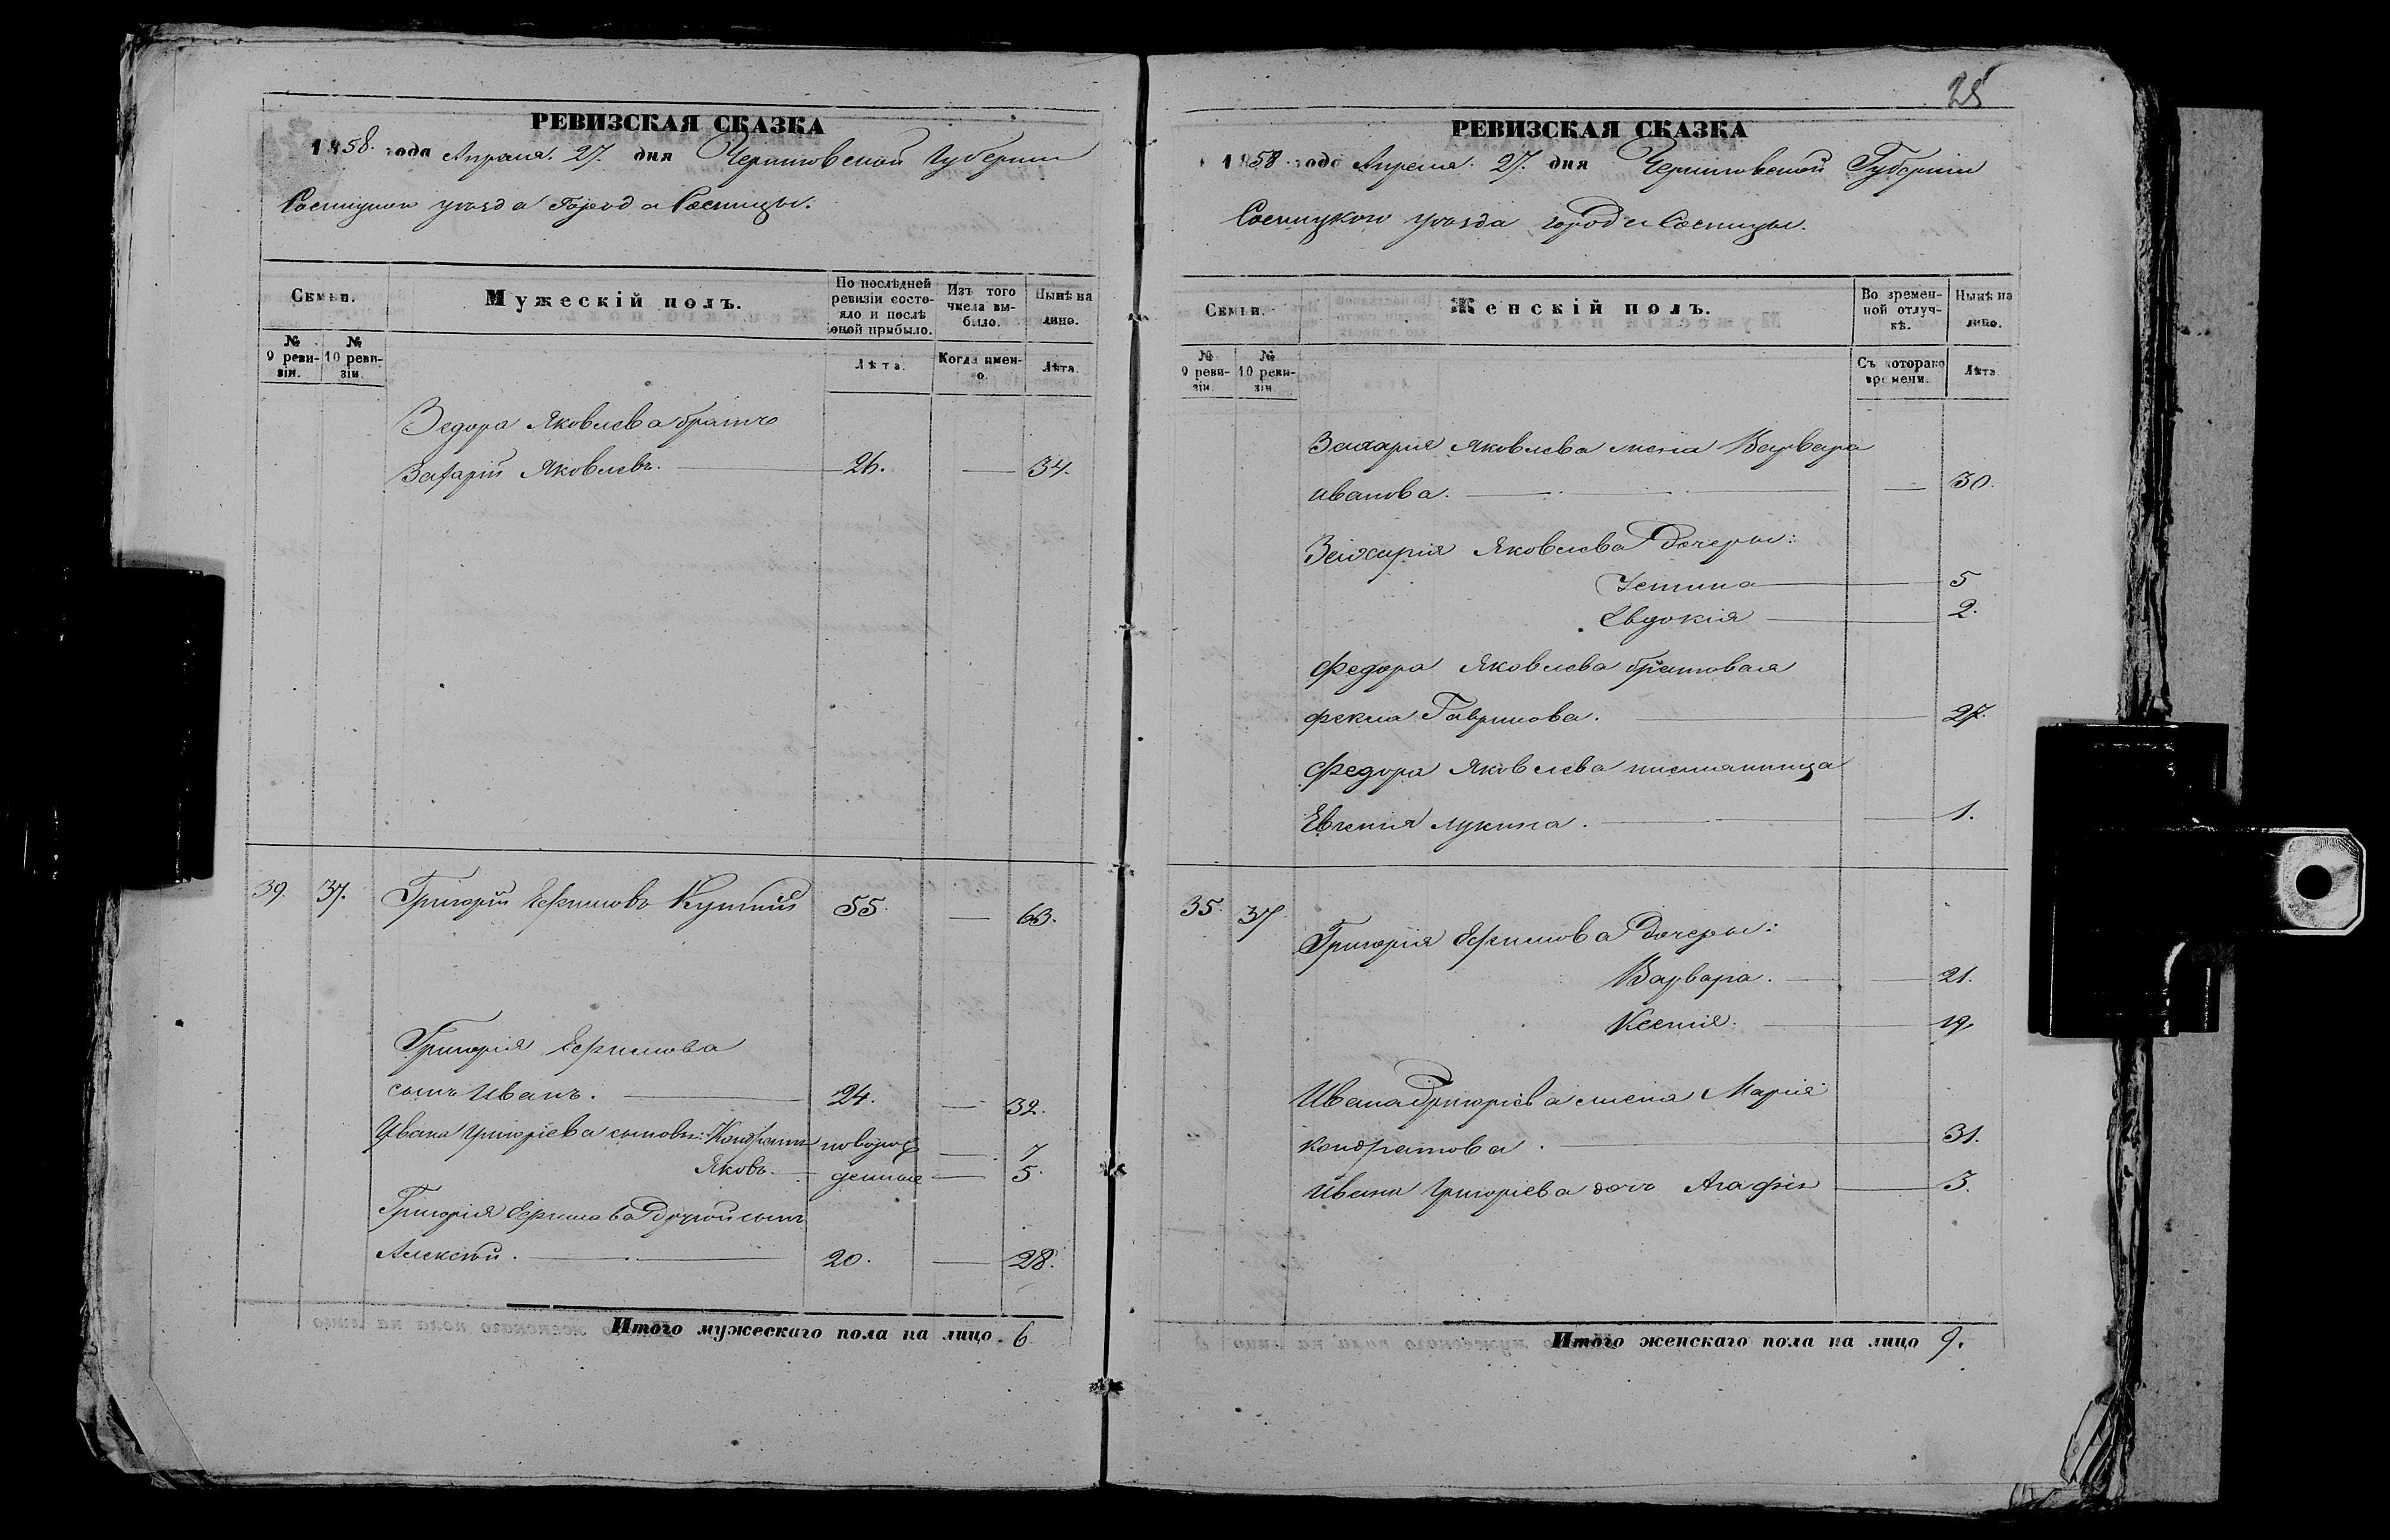 РЕВИЗСКАЯ СКАЗКА
1858. года Апреля. 27. дня Черниговской Губернии
Сосницкого уезда Города Сосницы.
Семьи.
Мужескій полъ.
По послѣдней ревизіи состояло и послѣ оной прибыло.
Изъ того числа выбыло.
Нынѣ на лицо.
№ 9 ревизіи.
№ 10 ревизіи.
Лѣта.
Когда именно.
Лѣта.
Федора Яковлева братъ
Захарій Яковлевъ. 26. — 34.
39. 37. Григорій Ефимовъ 55. — 63.
Григорія Ефимова
сынъ Иванъ. 24. — 32.
Ивана Григоріева сыновья: Кондратъ новорож — 7
Яковъ. — денные — 5.
Григорія Ефимова Другой сынъ
Алексѣй. 20. — 28.
Итого мужескаго пола на лицо. 6.
28
РЕВИЗСКАЯ СКАЗКА
1858 года Апреля. 27. дня Черниговской Губернии
Сосницкого уезда города Сосницы.
Семьи.
Женскій полъ.
Во временной отлучкѣ.
Нынѣ на лицо.
№ 9 ревизіи.
№ 10 ревизіи
Съ котораго времени.
Лѣта
Захарія Яковлева жена Варвара
иванова. — 30.
Захарія Яковлева Дочеры:
Устина 5
Евдокія 2.
Федора Яковлева братовая
Фекла Гаврилова. 27.
Федора Яковлева племянница
Евгенія Лукина. 1.
35. 37 Григорія Ефимова Дочеры:
Варвара. 21.
Ксенія. 19.
Ивана Григоріева жена Марія
Кондратова. 31.
Ивана Григоріева дочь Агафія 3.
Итого женскаго пола на лицо 9.